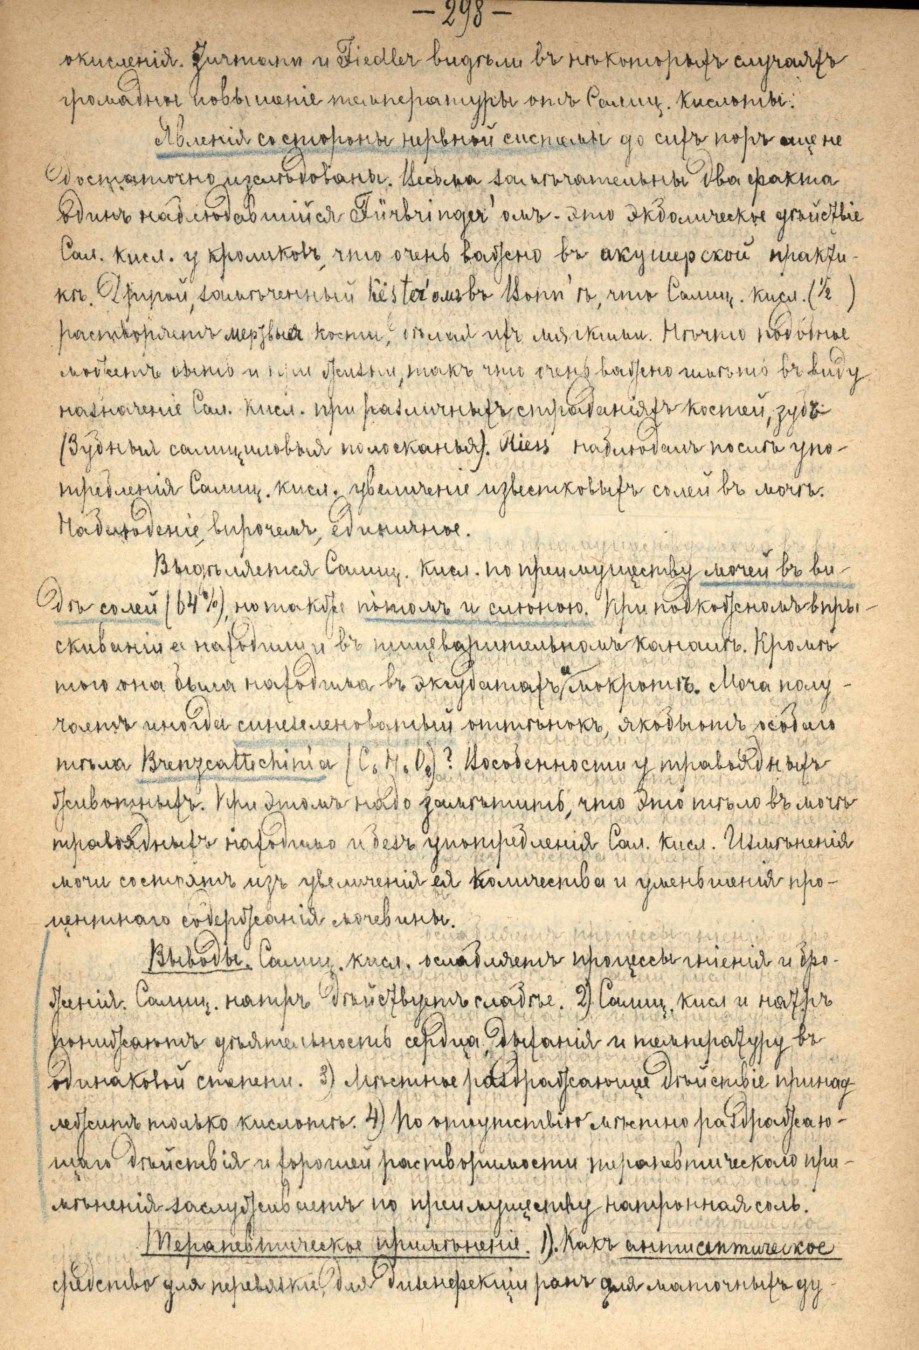 — 298 —
окисленія. и Fiedler видѣли въ нѣкоторыхъ случаяхъ
громадное повышеніе температуры отъ Салиц. кислоты.
Явленія со стороны нервной системы до сихъ поръ еще не
достаточно изслѣдованы. Весьма замѣчательны два факта
Одинъ наблюдавшійся Fürbringer'омъ - это экболическое дѣйствіе
Сал. кисл. у кроликовъ, что очень важно въ акушерской практи-
кѣ. Другой, замѣченный Köster'омъ въ Bonn'ѣ, что Салиц. кисл. (½ )
растворяетъ мертвыя кости, дѣлая ихъ мягкими. Нѣчто подобное
можетъ быть и при жизни, такъ что очень важно имѣть въ виду
назначеніе Сал. кисл. при различныхъ страданіяхъ костей, зубъ
(Зубныя салициловыя полосканья). Riess наблюдалъ послѣ упо-
требленія Салиц. кисл. увеличеніе известковыхъ солей въ мочѣ.
Наблюденіе, впрочемъ, единичное.
Выдѣляется Салиц. кисл. по преимуществу мочей въ ви-
дѣ солей (64%), но также потомъ и слюною. При подкожномъ впры-
скиваніи ее находили и въ пищеварительномъ каналѣ. Кромѣ
того она была находима въ экссудатахъ и мокротѣ. Моча полу-
чаетъ иногда синезеленоватый оттѣнокъ, якобы отъ особаго
тѣла Brenzcattechin'а (C₆ H₆ O₂)? Въ особенности у травоядныхъ
животныхъ. При этомъ надо замѣтить, что это тѣло въ мочѣ
травоядныхъ находимо и безъ употребленія Сал. кисл. Измѣненія
мочи состоятъ изъ увеличенія ея количества и уменьшенія про-
центнаго содержанія мочевины.
Выводы. Салиц. кисл. ослабляетъ процессы гніенія и бро-
женія. Салиц. натръ дѣйствуетъ слабѣе. 2) Салиц. кисл и натръ
понижаютъ дѣятельность сердца, дыханія и температуру въ
одинаковой степени. 3) Мѣстное раздражающее дѣйствіе принад
лежитъ только кислотѣ. 4) По отсутствію мѣстно раздражаю-
щаго дѣйствія и хорошей растворимости терапевтическаго при-
мѣненія заслуживаетъ по преимуществу натронная соль.
Терапевтическое примѣненіе. 1). Какъ антисептическое
средство для перевязки, для дизенфекціи ранъ для маточныхъ ду-